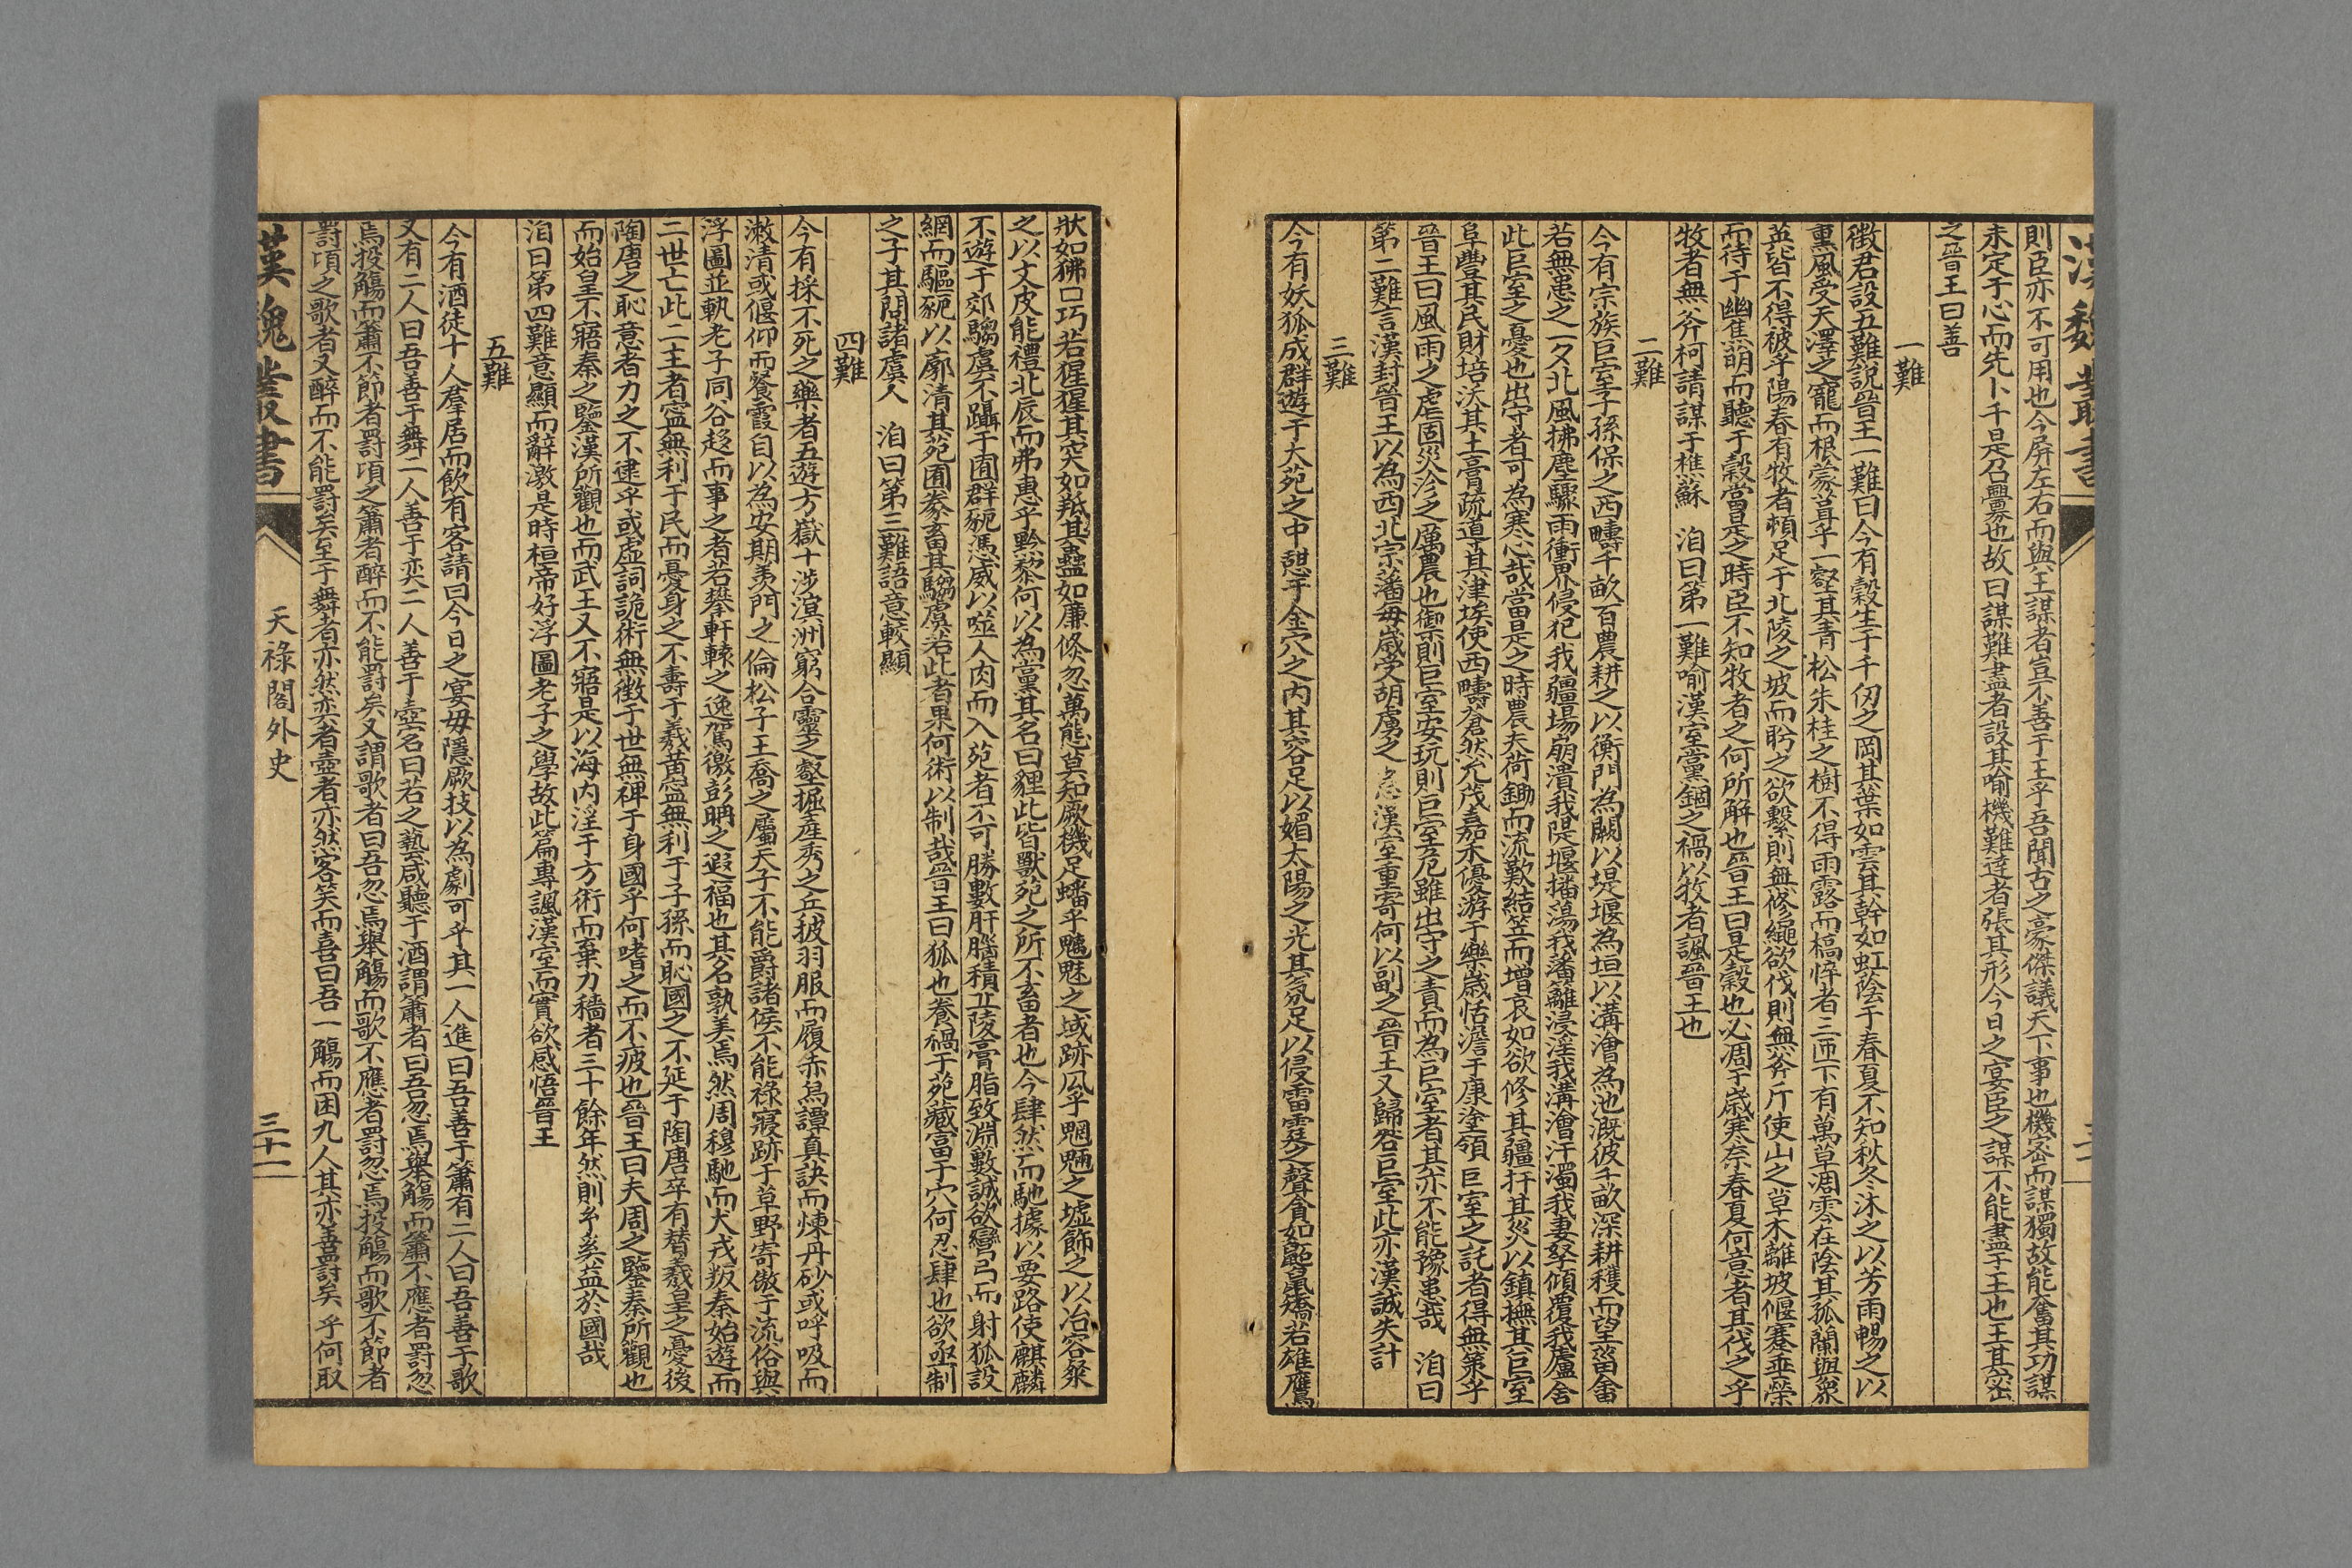 則臣亦不可用也今屏左右而與王謀者豈不善于王乎吾聞古之豪傑議天下事也機密而謀獨故能奮其功謀
未定于心而先卜于是召釁也故曰謀難盡者設其喻機難達者張其形今日之宴臣之謀不能盡于王也王其密
之晉王曰善
一難
徵君設五難說晉王一難曰今有穀生于千仞之岡其葉如雲其幹如虹蔭于春夏不知秋冬沐之以芳雨暢之以
熏風受天澤之寵而根蒙茸乎一壑其青松朱桂之樹不得雨露而槁悴者三匝下有萬草凋零在陰其孤蘭與衆
英皆不得被乎陽春有牧者頓足于北陵之坡而盻之欲繫則無修繩欲伐則無斧斤使山之草木離坡偃蹇垂榮
而待于幽焦萌而聽于穀當是之時臣不知牧者之何所解也晉王曰是穀也必凋于歲寒奈春夏何意者其伐之乎
牧者無斧柯請謀于樵蘇 洎曰第一難喻漢室黨錮之禍以牧者諷晉王也
二難
今有宗族巨室子孫保之西疇千畝百農耕之以衡門為闕以堤堰為垣以溝澮為池溉彼千畝深耕穫而望菑畬
若無患之一夕北風拂塵驟雨衝界侵犯我疆場崩潰我隄堰播蕩我藩籬浸淫我溝澮汙濁我妻孥傾覆我廬舍
此巨室之憂也出守者可為寒心哉當是之時農夫荷鋤而流歎結笠而增哀如欲修其疆扞其災以鎮撫其巨室
阜豐其民財培沃其土膏疏導其津埃使西疇蒼然允茂嘉禾優游于樂歲恬澹于康塗領巨室之託者得無策乎
晉王曰風雨之虐固災沴之厲農也禦則巨室安玩則巨室危雖出守之責而為巨室者其亦不能豫患哉 洎曰
第二難言漢封晉王以為西北宗藩每歲受胡虜之患漢室重寄何以副之晉王又歸咎巨室此亦漢誠失計
三難
今有妖狐成群遊于大苑之中憩于金穴之内其容足以媚太陽之光其氛足以侵雷霆之聲貪如鼫鼠矯若雄鷹
狀如狒口巧若猩猩其突如羝其蠱如廉倏忽萬態莫知厥機足蟠乎魑魅之域跡瓜乎魍魎之墟飾之以冶容粲
之以文皮能禮北辰而弗惠乎黔黎何以為黨其名曰貍此皆獸苑之所不畜者也今肆然而馳據以要路使麒麟
不遊于郊騶虞不躡于囿群豝憑威以噬人肉而入苑者不可勝數肝腦積丘陵膏脂致淵藪誠欲彎弓而射狐設
網而驅豝以廓清其苑囿豢畜其騶虞若此者果何術以制哉晉王曰狐也養禍于苑藏富于穴何忍肆也欲亟制
之子其問諸虞人 洎曰第三難語意較顯
四難
今有採不死之藥者五遊方嶽十涉溟洲窮合靈芝之壑掘產秀之丘披羽服而履赤舄譚真訣而煉丹砂或呼吸而
漱清或偃仰而餐霞自以為安期羨門之倫松子王喬之屬天子不能爵諸侯不能祿寢跡于草野寄傲于流俗與
浮圖並軌老子同谷趍而事之者若攀軒轅之逸駕徼彭聃之遐福也其名孰美焉然周穆馳而犬戎叛秦始遊而
二世亡此二主者寧無利于民而憂身之不壽于羲黃寧無利于子孫而恥國之不延于陶唐卒有替羲皇之憂後
陶唐之恥意者力之不逮乎或虛詞詭術無徵于世無裨于身國乎何嗜之而不疲也晉王曰夫周之鑒秦所觀也
而始皇不寤秦之鑒漢所觀也而武王又不寤是以海内淫于方術而棄力穡者三十餘年然則乎奚益於國哉
洎曰第四難意顯而辭激是時桓帝好浮圖老子之學故此篇專諷漢室而實欲感悟晉王
五難
今有酒徒十人羣居而飲有客請曰今日之宴毋隱厥技以為劇可乎其一人進曰吾善于簫有二人曰吾善于歌
又有二人曰吾善于舞二人善于奕二人善于壺名曰若之藝咸聽于酒謂簫者曰吾忽焉舉觴而簫不應者罰忽
焉投觴而簫不節者罰頃之簫者醉而不能罰矣又謂歌者曰吾忽焉舉觴而歌不應者罰忽焉投觴而歌不節者
罰頃之歌者又醉而不能罰矣至于舞者亦然奕者壺者亦然客笑而喜曰吾一觴而困九人其亦善罰矣乎何取
漢魏叢書
天祿閣外史
三十一